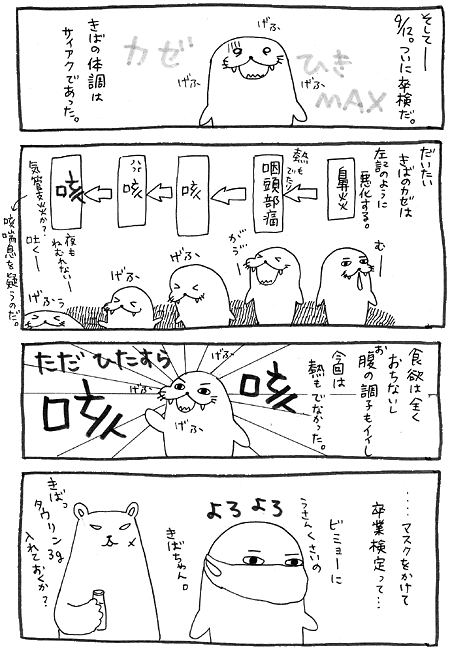 そして――
9/12。ついに卒検だ。
げふ
げふ
げふ
カゼ
ひき
MAX
きばの体調は
サイアクであった。
だいたい
きばのカゼは
左記のように
悪化する。
むー
鼻炎
熱も
でたり
咽頭部痛
がう"…
咳
げふ、
咳
げふ、
咳
げふぅ
夜も
ねむれない――
吐く――
気管支炎か?
咳喘息を疑うのだ。
食欲は全く
おちないし
お腹の調子もイイし
今回は
熱もでなかった。
げふ
げふ
げふ
咳
ただ ひたすら
咳
....マスクをかけて
卒業検定って…
ビミョーに
うさんくさいの
きばちゃん。
よろよろ
きばっ
タウリン3g
入れておくか?